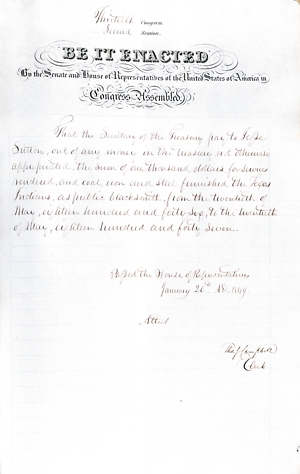 Thirtieth Congress.
Second Session.
BE IT ENACTED
By the Senate and House of Representatives of the United States of America in
Congress Assembled,
That the Secretary of the Treasury pay to Jesse
Sutton, out of any money in the treasury not otherwise
appropriated, the sum of one thousand dollars, for services
rendered, and coal, iron and steel furnished the Texas
Indians, as public blacksmith, from the twentieth of
May, eighteen hundred and forty six, to the twentieth
of May, eighteen hundred and forty seven.
Passed the House of Representatives
January 26th AD. 1849.
Attest
Tho J Campbell
Clerk